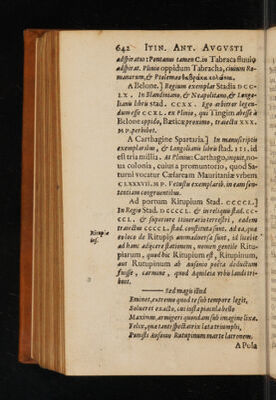 642 ITIN. ANT. AVGVSTI
adspiratur: Pontanus tamen C. in Tabraca fluuio
adspirat. Plinio oppidum Tabracha, ciuium Ro-
manorum, & Ptolemæo
A Belone.] Regium exemplar Stadia DCC-
LX. In Blandiniano, & Neapolitano, & Lango-
liani libris stad. CCXX. Ego arbitror legen-
dum esse CCXL. ex Plinio, qui Tingim abesse à
Belone oppido, Bæticæ proximo, traiectu XXX.
M P. perhibet.
A Carthagine Spartaria.] In manuscriptis
exemplaribus, & Langoliani libris stad. III, id
est tria millia. At Plinius: Carthago, inquit, no-
ua colonia, cuius a promuntorio, quod Sa-
turni vocatur Cæsaream Mauritaniæ vrbem
CLXXXVII. M P. Vetustis exemplarib. in eam sen-
tentiam congruentibus.
Ad portum Ritupium Stad. CCCCL.]
In Regio Stad. DCCCCL. & in reliquis stad. CC-
CCL. & superiore itinerario terrestri, eadem
traiectu CCCCL. stad. constituta sunt. Ad ea, quæ
eo loco de Ritupis animaduersa sunt, id licebit
ad hanc adijcere stationem, nomen gentile Ritu-
piarum, quod hic Ritupium est, Ritupinum,
aut Rutupinum ab Ausonio poëta deductum
fuisse, carmine, quod Aquileia vrbis landi tri-
buit.
Ritupiæ
Sed magis illud
Eminet, extremo quod te sub tempore legit,
Solueret exacto, cui iusta piacula bello
Maximus, armigeri quondam sub imagine lixæ.
Felix, quæ tanti spectatrix læta triumphi,
Punisti Ausonio Rutupinum marte latronem.
A Pola